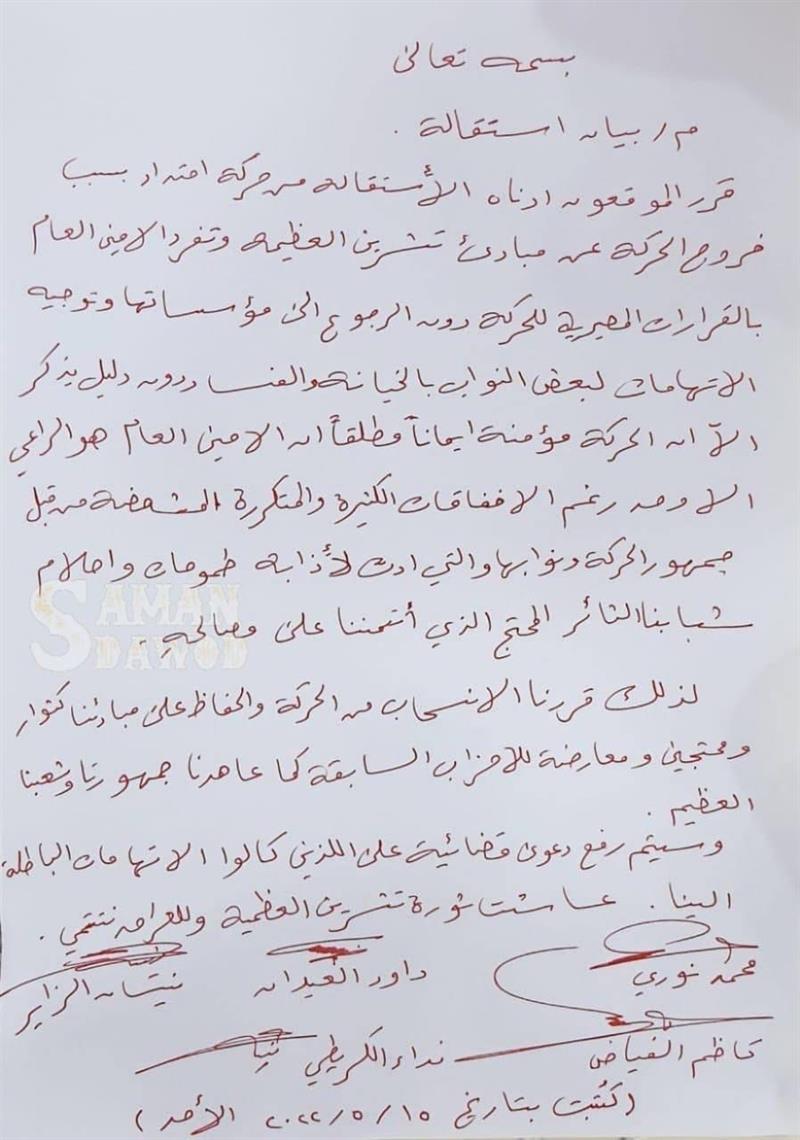 بسمه تعالى
م / بيان استقالة .
قرر الموقعون ادناه الأستقاله من حركة امتداد بسبب
خروج الحركة عن مبادئ تشرين العظيمه وتفرد الامين العام
بالقرارات المصيرية للحركه دون الرجوع الى مؤسساتها وتوجيه
الاتهامات لبعض النواب بالخيانة والفساد دون دليل يذكر
الآ ان الحركة مؤمنة ايماناً مطلقاً ان الامين العام هو الراعي
الاوحد رغم الاخفاقات الكثيرة والمتكررة المشخصة من قبل
جمهور الحركة ونوابها والتي ادت لأذابة طموحات واحلام
شبابنا الثائر المحتج الذي أئتمننا على مصالحهِ .
SAMAN DAWOD
لذلك قررنا الانسحاب من الحركة والحفاظ على مبادئنا كثوار
ومحتجين ومعارضة للاحزاب السابقة كما عاهدنا جمهورنا وشعبنا
العظيم .
وسيتم رفع دعوى قضائية على اللذين كالوا الاتهامات الباطلة
الينا . عاشت ثورة تشرين العظمية وللعراق ننتمي .
محمد نوري داود العيدان نيسان الزاير
كاظم الفياض نداء الكريطي
(كُتبت بتاريخ ١٥ / ٥ / ٢٠٢٢ الأحد )